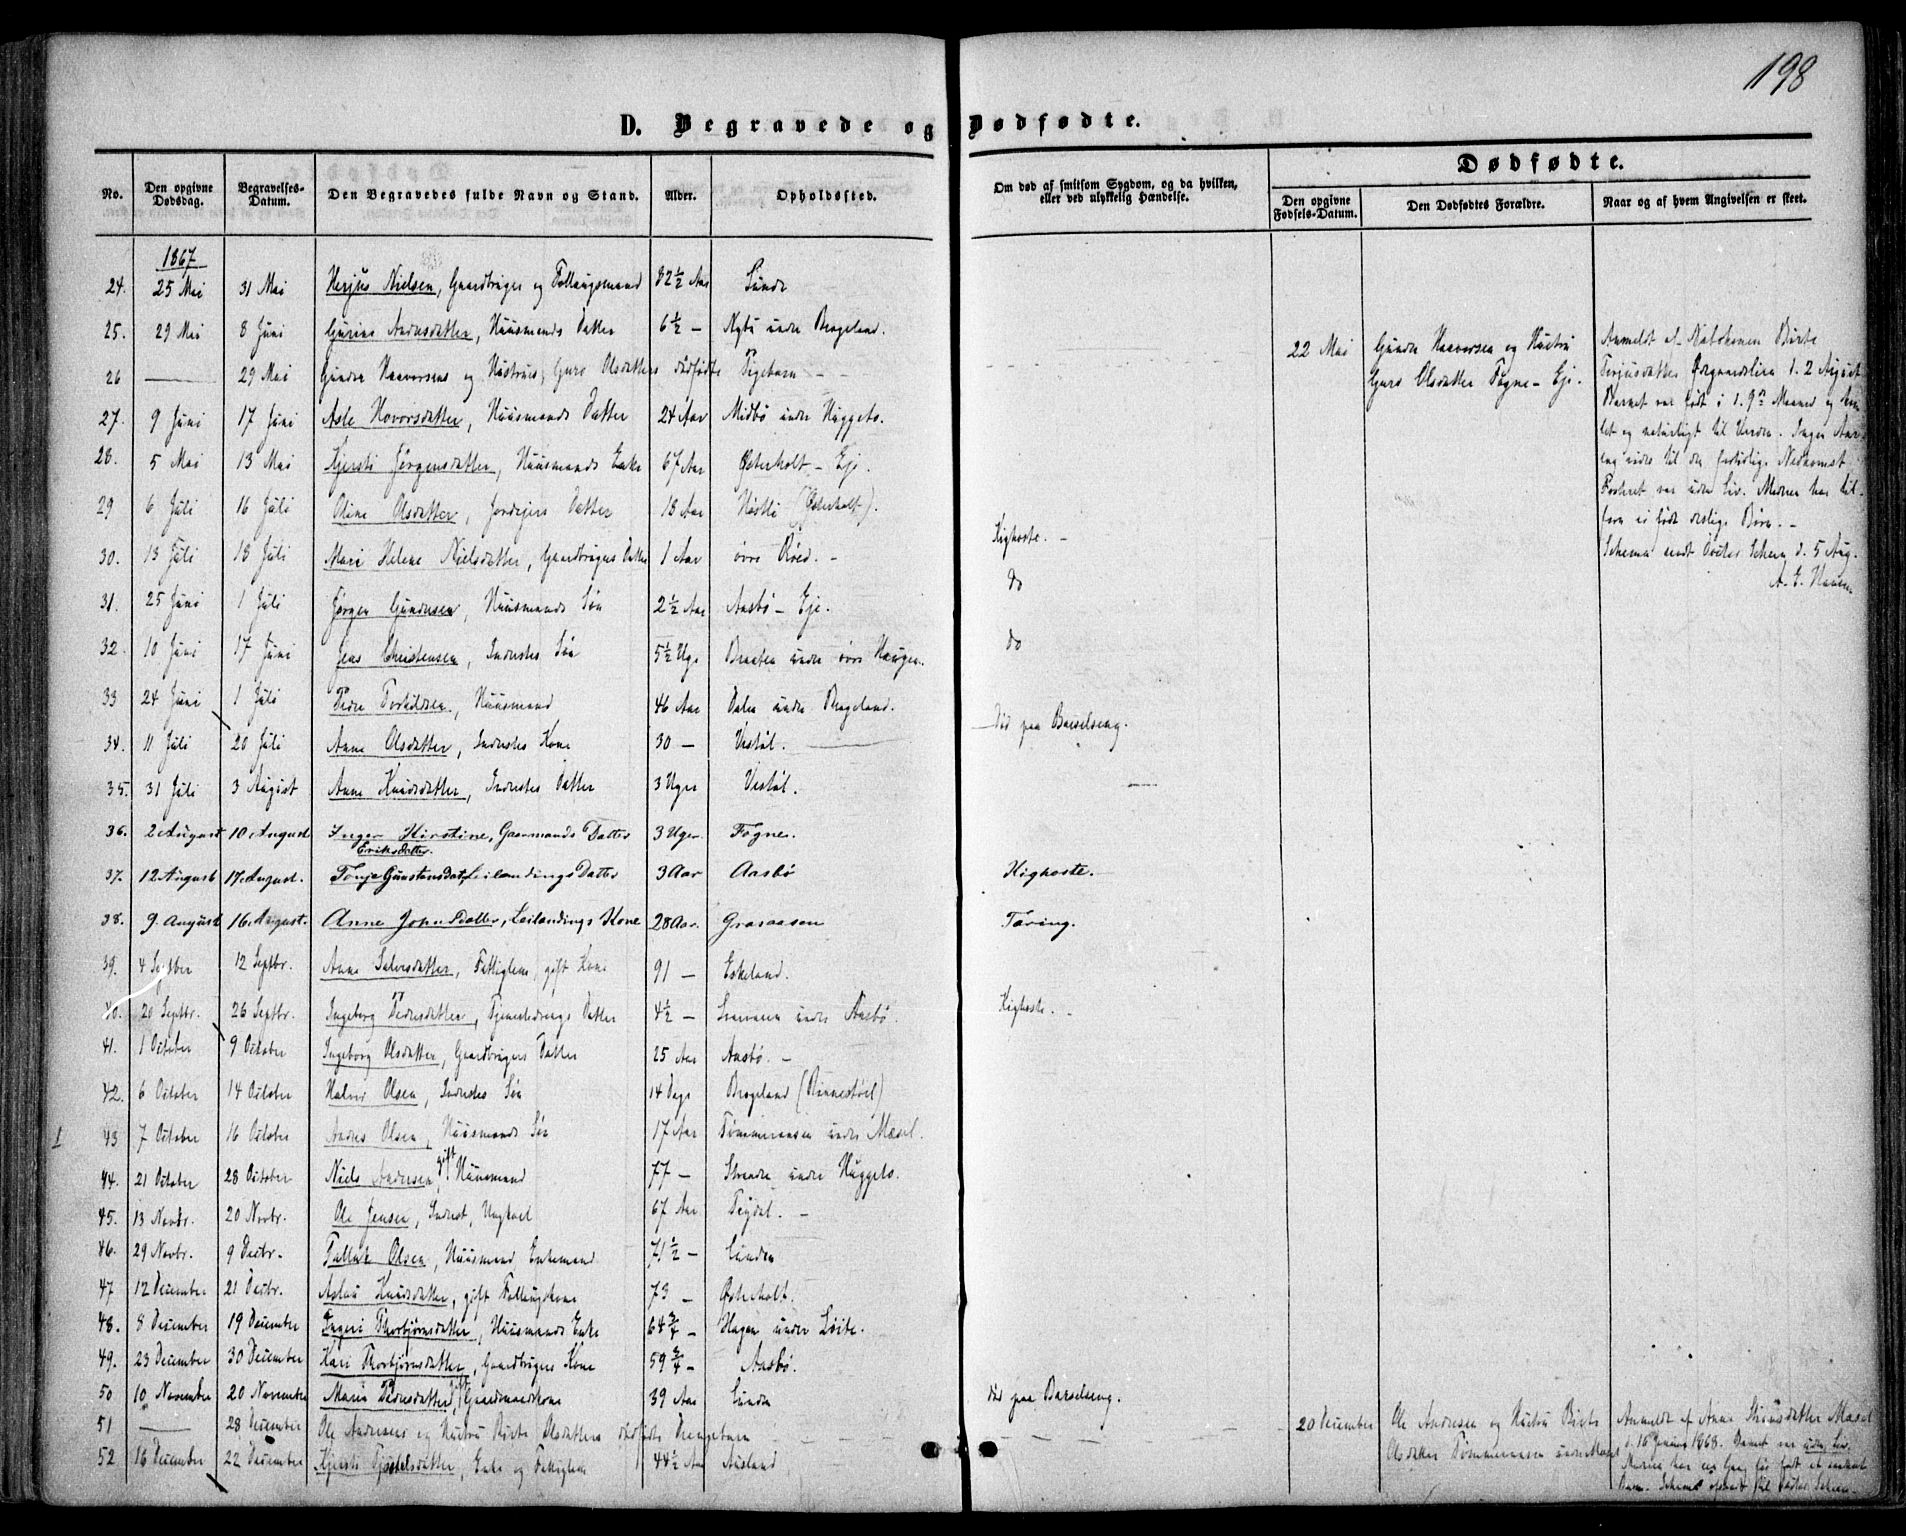 198
D. Begravede og Dødfødte.
No. | Den opgivne Dødsdag. | Begravelses-Datum. | Den Begravedes fulde Navn og Stand. | Alder. | Opholdssted. | Om død af smitsom Sygdom, og da hvilken, eller ved ulykkelig Hændelse. | Dødfødte.
Den opgivne Fødsels-Datum. | Den Dødfødtes Forældre. | Naar og af hvem Angivelsen er skeet.
1867
24. 25 Mai 31 Mai Nielsen, Gaardbruger og 82½ Aar Sunde
25. 29 Mai 8 Juni Andersdatter, Huusmands Datter 6½ — under Bergeland.
26 — 29 Mai Gunder Haaversens og Hustrues, Guro Olsdatters dødfødte Pigebarn — 22 Mai Gunder Haaversen og Hustru Guro Olsdatter Fogne — Eje.
Anmeldt af Birte
Terjusdatter 2 August
Barnet var født i 9de Maaned og
naturligt til Verden. Ingen
Fosteret var uden Liv. Moderen har
ei født Børn. —
Schema sendt 5 Aug.
27. 9 Juni 17 Juni Asle Hovorsdatter, Huusmands Datter 24 Aar Midbø under Huggets.
28. 5 Mai 13 Mai Kjersti Jørgensdatter, Huusmands Enke 67 Aar Østerholt — Eje.
29 6 Juli 16 Juli Oline Olsdatter, Datter 18 Aar (Østerholt).
30. 13 Juli 18 Juli Mari Helene Nielsdatter, Gaardbrugers Datter 1 Aar øvre Røed. — Kighoste. —
31. 25 Juni 1 Juli Jørgen Gundersen, Huusmands Søn 2½ Aar Aasbø — Eje. do
32. 10 Juni 17 Juni Jens Christensen, Inderstes Søn 5½ Uge Braaten under øvre Haugen. do
33 24 Juni 1 Juli Peder Torkildsen, Huusmand 46 Aar Dalen under Bergeland.
34. 11 Juli 20 Juli Anne Olsdatter, Inderstes Kone 30 — Vestøl. Død paa Barselseng.
35. 31 Juli 3 August Anne Knudsdatter, Inderstes Datter 3 Uger Vestøl. —
36. 2 August 10 August Inger Kirstine Eriksdatter, Gaarmands Datter 3 Uger. Fogne.
37. 12 August 17 August. Tonje Gunstensdat, Leilændings Datter 3 Aar Aasbø Kighoste.
38. 9. August 16. August. Anne Johnsdatter, Leilændings Kone 28 Aar. Graaaasen Tæring.
39. 4 Septber 12 Septbr. Anne Salvesdatter, Fattiglem, gift Kone 91 — Eskeland.
40. 20 Septbr. 26 Septbr. Ingeborg Pedersdatter, Tjenestedrengs Datter 4½ — under Aasbø. Kighoste. —
41. 1 October 9 October Ingeborg Olsdatter, Gaardbrugers Datter 25 Aar Aasbø. —
42. 6 October 14 October Halvor Olsen, Inderstes Søn 14 Dage Bergeland (Rinnestøel)
43 7 October 16 October Anders Olsen, Huusmands Søn 17 Aar Tømmeraasen under Mæsel.
44. 21 October 28 October Niels Andersen, gift Huusmand 77 — Stranden under Huggets.
45. 13 Novbr. 20 Novbr. Ole Jensen, Inderst, Ungkarl 67 Aar —
46. 29 Novbr. 9 Decbr. Tallak Olsen, Huusmand Enkemand 71½ — Lunden
47 12 December 21 Decbr. Aslau Knudsdatter, gift 73 — Østerholt.
48. 8 December 19 December Ingeri Thorbjørnsdatter, Huusmands Enke 64¾ — Hagen under Løite.
49. 23 December 30 December Kari Thorbjørnsdatter, Gaardbrugers Kone 59¾ — Aasbø.
50 10 November 20 November Maria Pedersdatter, gift Gaardmandskone 39 Aar Lunden død paa Barselseng.
51 — 28 December Ole Andersens og Hustru Birte Olsdatters dødfødte Drengebarn — 20 December Ole Andersen og Hustru Birte Olsdatter Tømmeraasen under Mæsel
Anmeldt af Anne Mæsel
d. 16 Januar 1868. Barnet var uden Liv.
Moderen har een Gang før født et
Barn. Schema til
52 16 December 22 December Kjersti Tjøstelsdatter, Enke og Fattiglem 44½ Aar Ausland